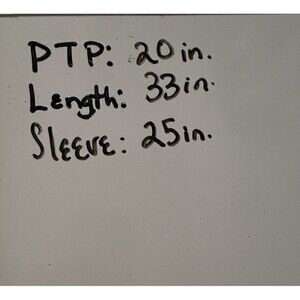 PTP: 20in.
Length: 33in.
Sleeve: 25in.